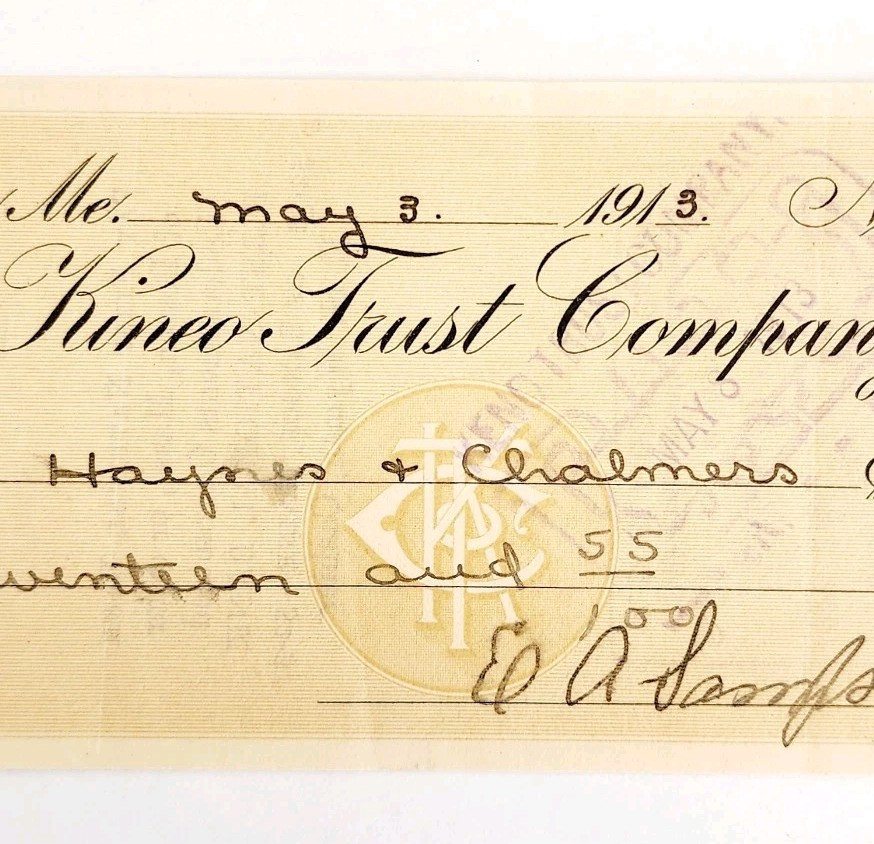 Me. May 3. 1913. N
Kineo Trust Company
Haynes & Chalmers C
venteen and 55/100
E A Samps